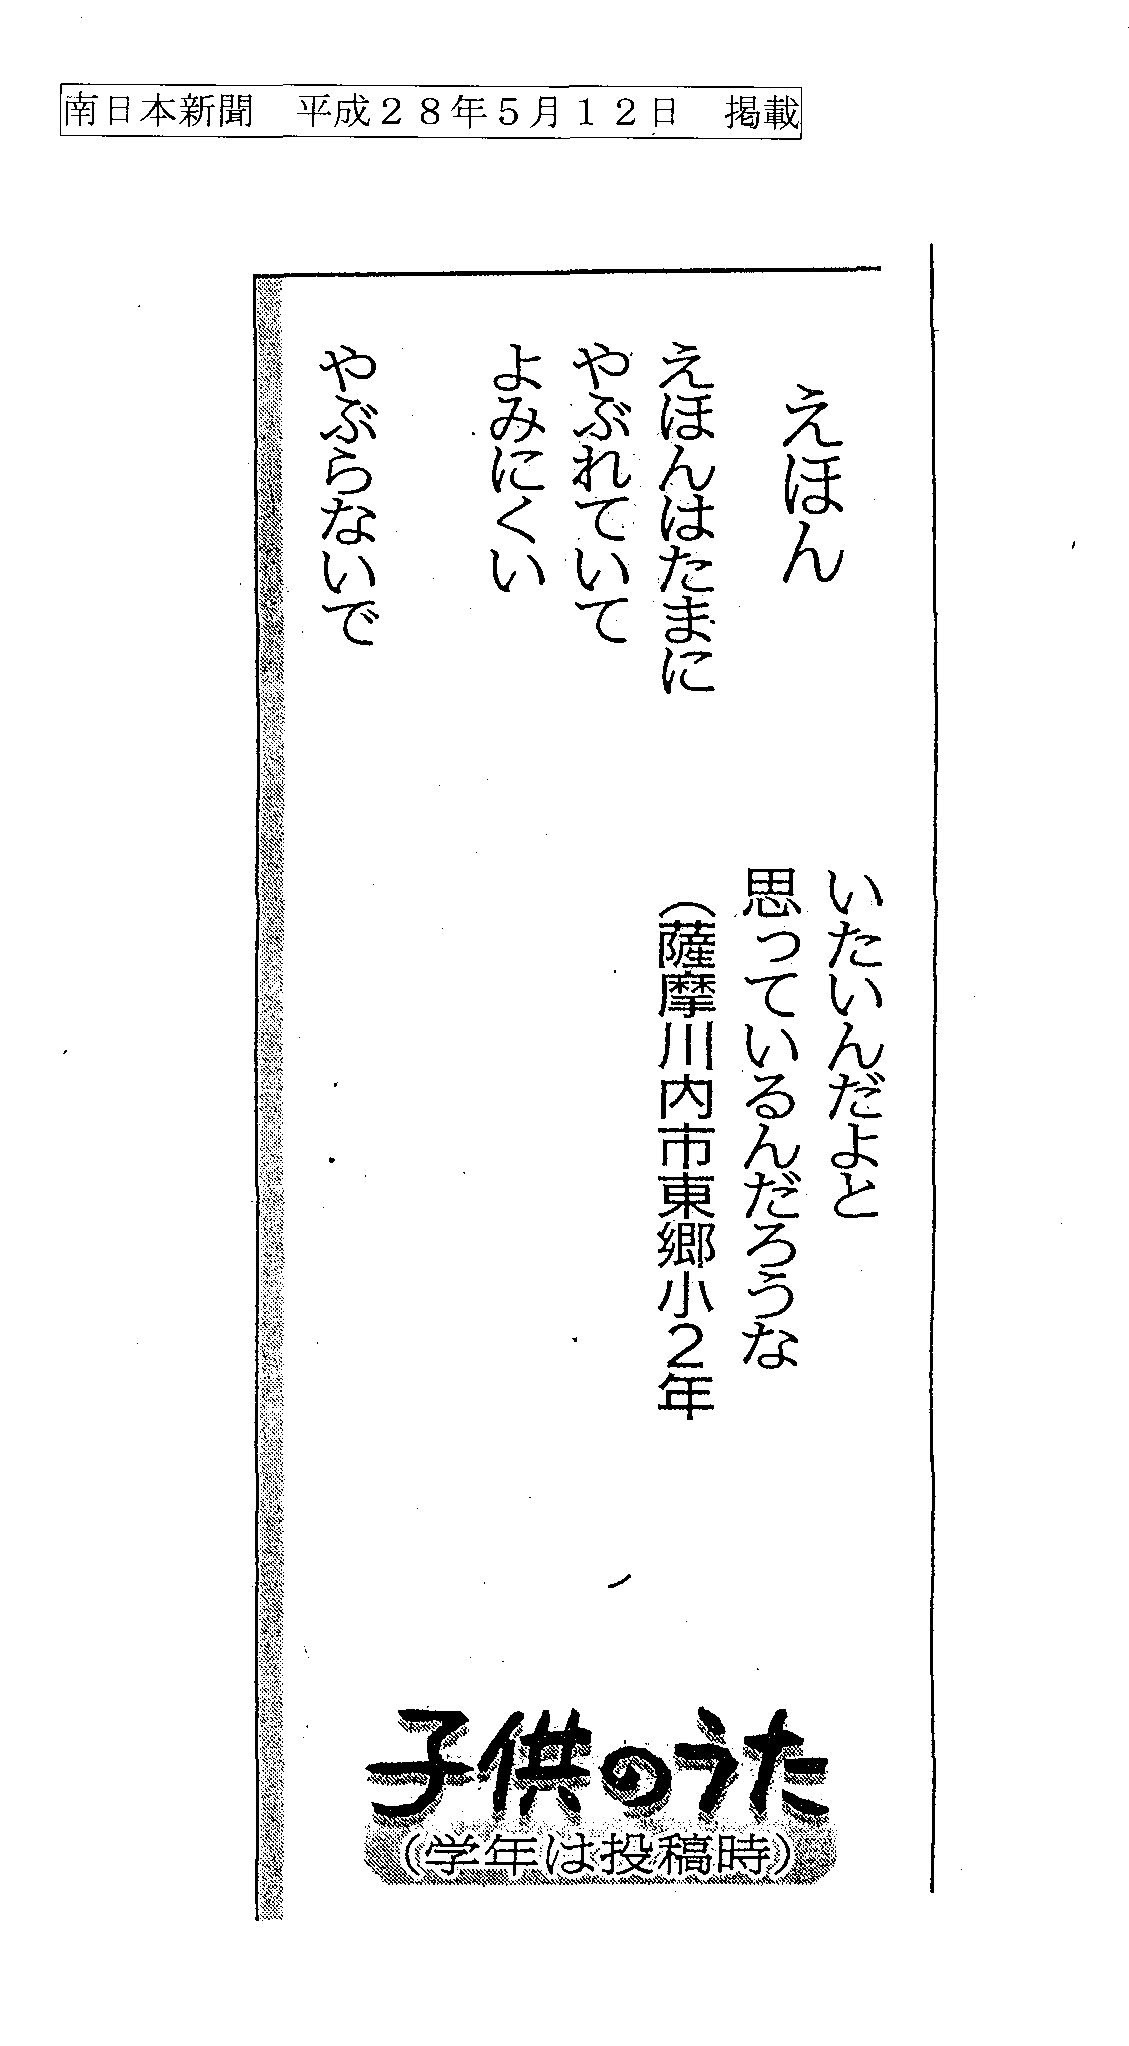 南日本新聞　平成２８年５月１２日　掲載
えほん
えほんはたまに
やぶれていて
よみにくい
やぶらないで
いたいんだよと
思っているんだろうな
（薩摩川内市東郷小２年
子供のうた
（学年は投稿時）